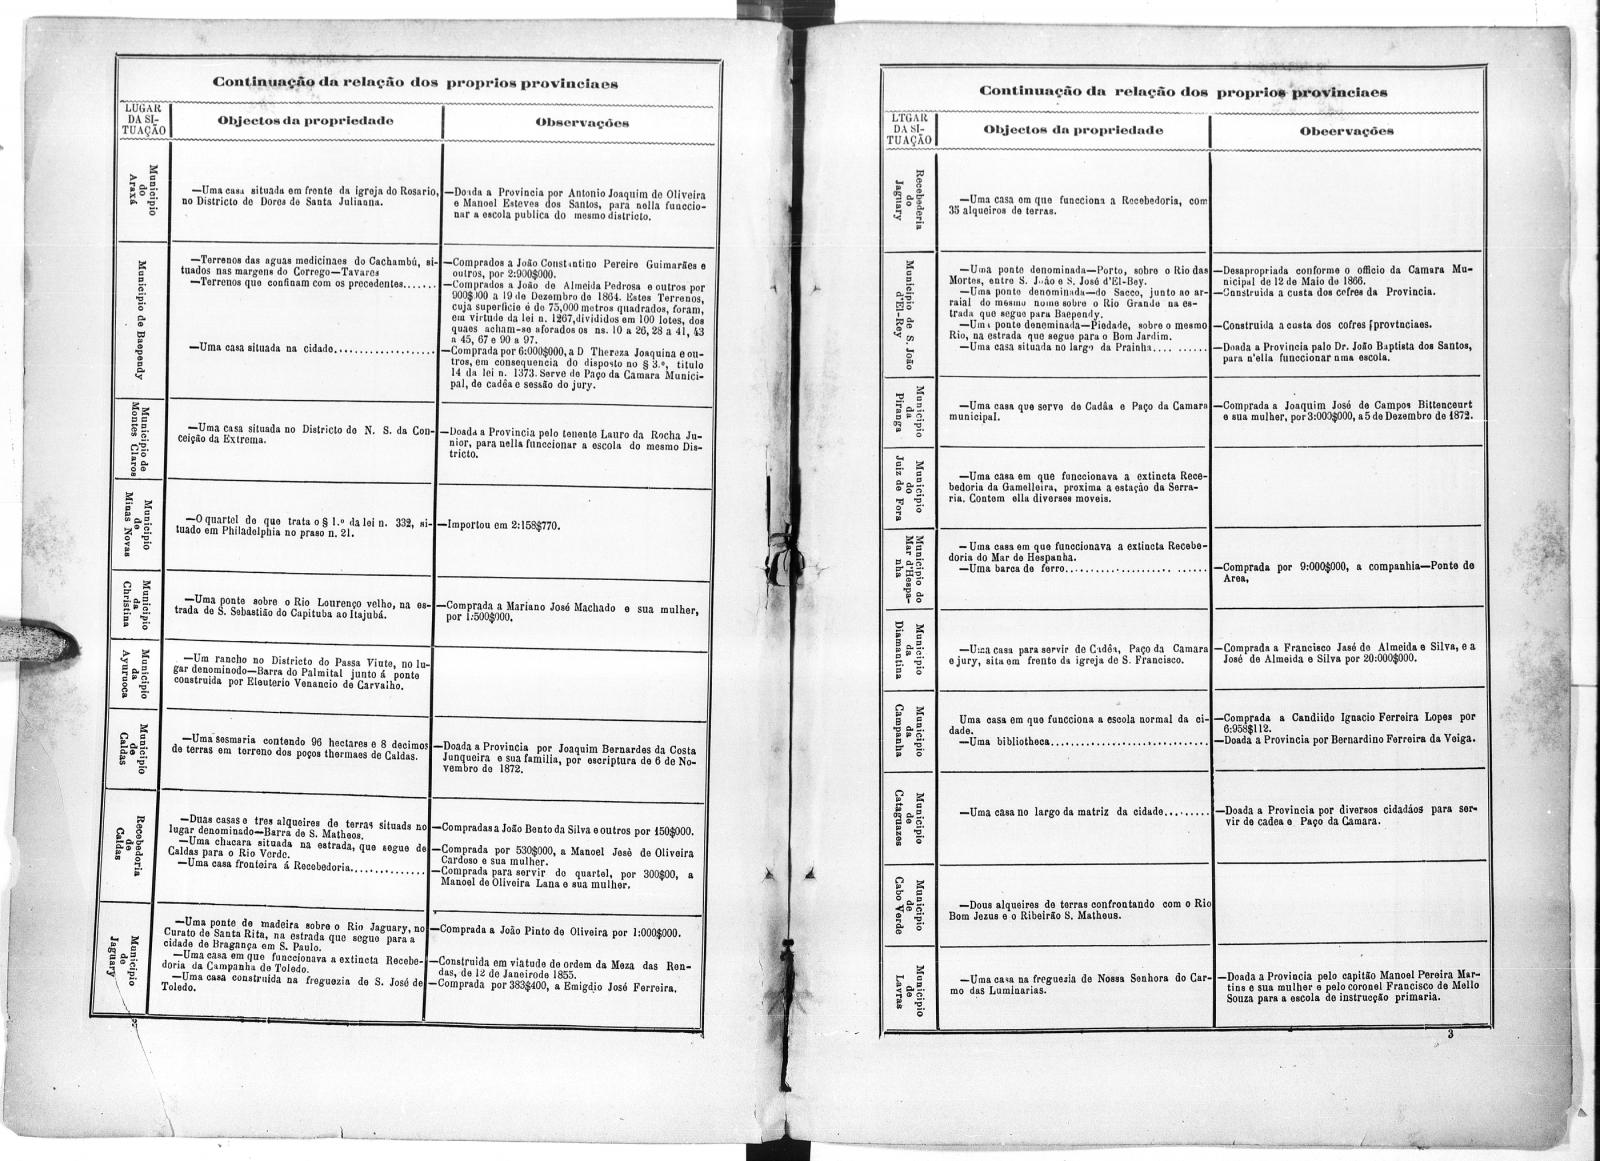 Continuação da relação dos proprios provinciaes
LUGAR
DA SI-
TUAÇÃO
Objectos da propriedade
Observações
Municipio
do
Araxá
—Uma casa situada em frente da igreja do Rosario,
no Districto de Dores de Santa Julianna.
—Doada a Provincia por Antonio Joaquim de Oliveira
e Manoel Esteves dos Santos, para nella funccio-
nar a escola publica do mesmo districto.
Municipio de Baependy
—Terrenos das aguas medicinaes do Cachambú, si-
tuados nas margens do Corrego—Tavares
—Terrenos que confinam com os precedentes.......
—Uma casa situada na cidade..................
—Comprados a João Constantino Pereire Guimarães e
outros, por 2:900$000.
—Comprados a João de Almeida Pedrosa e outros por
900$000 a 19 de Dezembro de 1864. Estes Terrenos,
cuja superficie é de 75,000 metros quadrados, foram,
em virtude da lei n. 1267,divididos em 100 lotes, dos
quaes acham-se aforados os ns. 10 a 26, 28 a 41, 43
a 45, 67 e 90 a 97.
—Comprada por 6:000$000, a D Thereza Joaquina e ou-
tros, em consequencia do disposto no § 3.º, titulo
14 da lei n. 1373. Serve de Paço da Camara Munici-
pal, de cadêa e sessão do jury.
Municipio de
Montes Claros
—Uma casa situada no Districto de N. S. da Con-
ceição da Extrema.
—Doada a Provincia pelo tenente Lauro da Rocha Ju-
nior, para nella funccionar a escola do mesmo Dis-
tricto.
Municipio
de
Minas Novas
—O quartel de que trata o § 1.º da lei n. 332, si-
tuado em Philadelphia no praso n. 21.
—Importou em 2:158$770.
Municipio
da
Christina
—Uma ponte sobre o Rio Lourenço velho, na es-
trada de S. Sebastião do Capituba ao Itajubá.
—Comprada a Mariano José Machado e sua mulher,
por 1:500$000.
Municipio
da
Ayuruoca
—Um rancho no Districto do Passa Viute, no lu-
gar denominodo—Barra do Palmital junto á ponte
construida por Eleuterio Venancio de Carvalho.
Municipio
de
Caldas
—Uma sesmaria contendo 96 hectares e 8 decimos
de terras em terreno dos poços thermaes de Caldas.
—Doada a Provincia por Joaquim Bernardes da Costa
Junqueira e sua familia, por escriptura de 6 de No-
vembro de 1872.
Recebedoria
de
Caldas
—Duas casas e tres alqueires de terras situads no
lugar denominado—Barra de S. Matheos.
—Uma chacara situada na estrada, que segue de
Caldas para o Rio Verde.
—Uma casa fronteira á Recebedoria...............
—Compradas a João Bento da Silva e outros por 150$000.
—Comprada por 530$000, a Manoel Jesè de Oliveira
Cardoso e sua mulher.
—Comprada para servir de quartel, por 300$00, a
Manoel de Oliveira Lana e sua mulher.
Municipio
de
Jaguary
—Uma ponte de madeira sobre o Rio Jaguary, no
Curato de Santa Rita, na estrada que segue para a
cidade de Bragança em S. Paulo.
—Uma casa em que funccionava a extincta Recebe-
doria da Campanha de Toledo.
—Uma casa construida na freguezia de S. José de
Toledo.
—Comprada a João Pinto de Oliveira por 1:000$000.
—Construida em viatude de ordem da Meza das Ren-
das, de 12 de Janeirode 1855.
—Comprada por 383$400, a Emigdio José Ferreira.
Continuação da relação dos proprios provinciaes
LTGAR
DA SI-
TUAÇÃO
Objectos da propriedade
Obeervações
Recebederia
do
Jaguary
—Uma casa em que funcciona a Recebedoria, com
35 alqueiros de terras.
Municipio de S. João
d'El-Rey
—Uma ponte denominada—Porto, sobre o Rio das
Mortes, entre S. João e S. José d'El-Bey.
—Uma ponte denominada—do Sacco, junto ao ar-
raial do mesmo nome sobre o Rio Grande na es-
trada que segue para Baependy.
—Uma ponte deneminada—Piedade, sobre o mesmo
Rio, na estrada que segue para o Bom Jardim.
—Uma casa situada no largo da Prainha.... ......
—Desapropriada conforme o officio da Camara Mu-
nicipal de 12 de Maio de 1866.
—Cnnstruida a custa dos cofres da Provincia.
—Construida a custa dos cofres provtnciaes.
—Doada a Provincia palo Dr. João Baptista dos Santos,
para n'ella funccionar nma escola.
Municipio
da
Piranga
—Uma casa que serve de Cadâa e Paço da Camara
municipal.
—Comprada a Joaquim José de Campos Bittenceurt
e sua mulher, por 3:000$000, a 5 de Dezembro de 1872.
Municipio
do
Juiz de Fora
—Uma casa em que funccionava a extincta Rece-
bedoria da Gamelleira, proxima a estação da Serra-
ria. Contem ella diverses moveis.
Municipio do
Mar d'Hespa-
nha
—Uma casa em que funccionava a extincta Recebe-
doria do Mar de Hespanha.
—Uma barca de ferro....................... ......
—Comprada por 9:000$000, a companhia—Ponte de
Area,
Municipio
da
Diamantina
—Uma casa para servir de Cadêa, Paço da Camara
e jury, sita em frente da igreja de S. Francisco.
—Comprada a Francisco Jasé de Almeida e Silva, e a
José de Almeida e Silva por 20:000$000.
Municipio
da
Campanha
Uma casa em que funcciona a escola normal da ci-
dade.
—Uma bibliotheca.............................
—Comprada a Candiido Ignacio Ferreira Lopes por
6:958$112.
—Doada a Provincia por Bernardino Ferreira da Veiga.
Municipio
de
Cataguazes
—Uma casa no largo da matriz da cidade.........
—Doada a Provincia por diversos cidadãos para ser-
vir de cadea e Paço da Camara.
Municipio
de
Cabo Verde
—Dous alqueires de terras confrontando com o Rio
Bom Jezus e o Ribeirão S. Matheus.
Municipio
de
Lavras
—Uma casa na freguezia de Nossa Senhora do Car-
mo das Luminarias.
—Doada a Provincia pelo capitão Manoel Pereira Mar-
tins e sua mulher e pelo coronel Francisco de Mello
Souza para a escola de instrucção primaria.
3